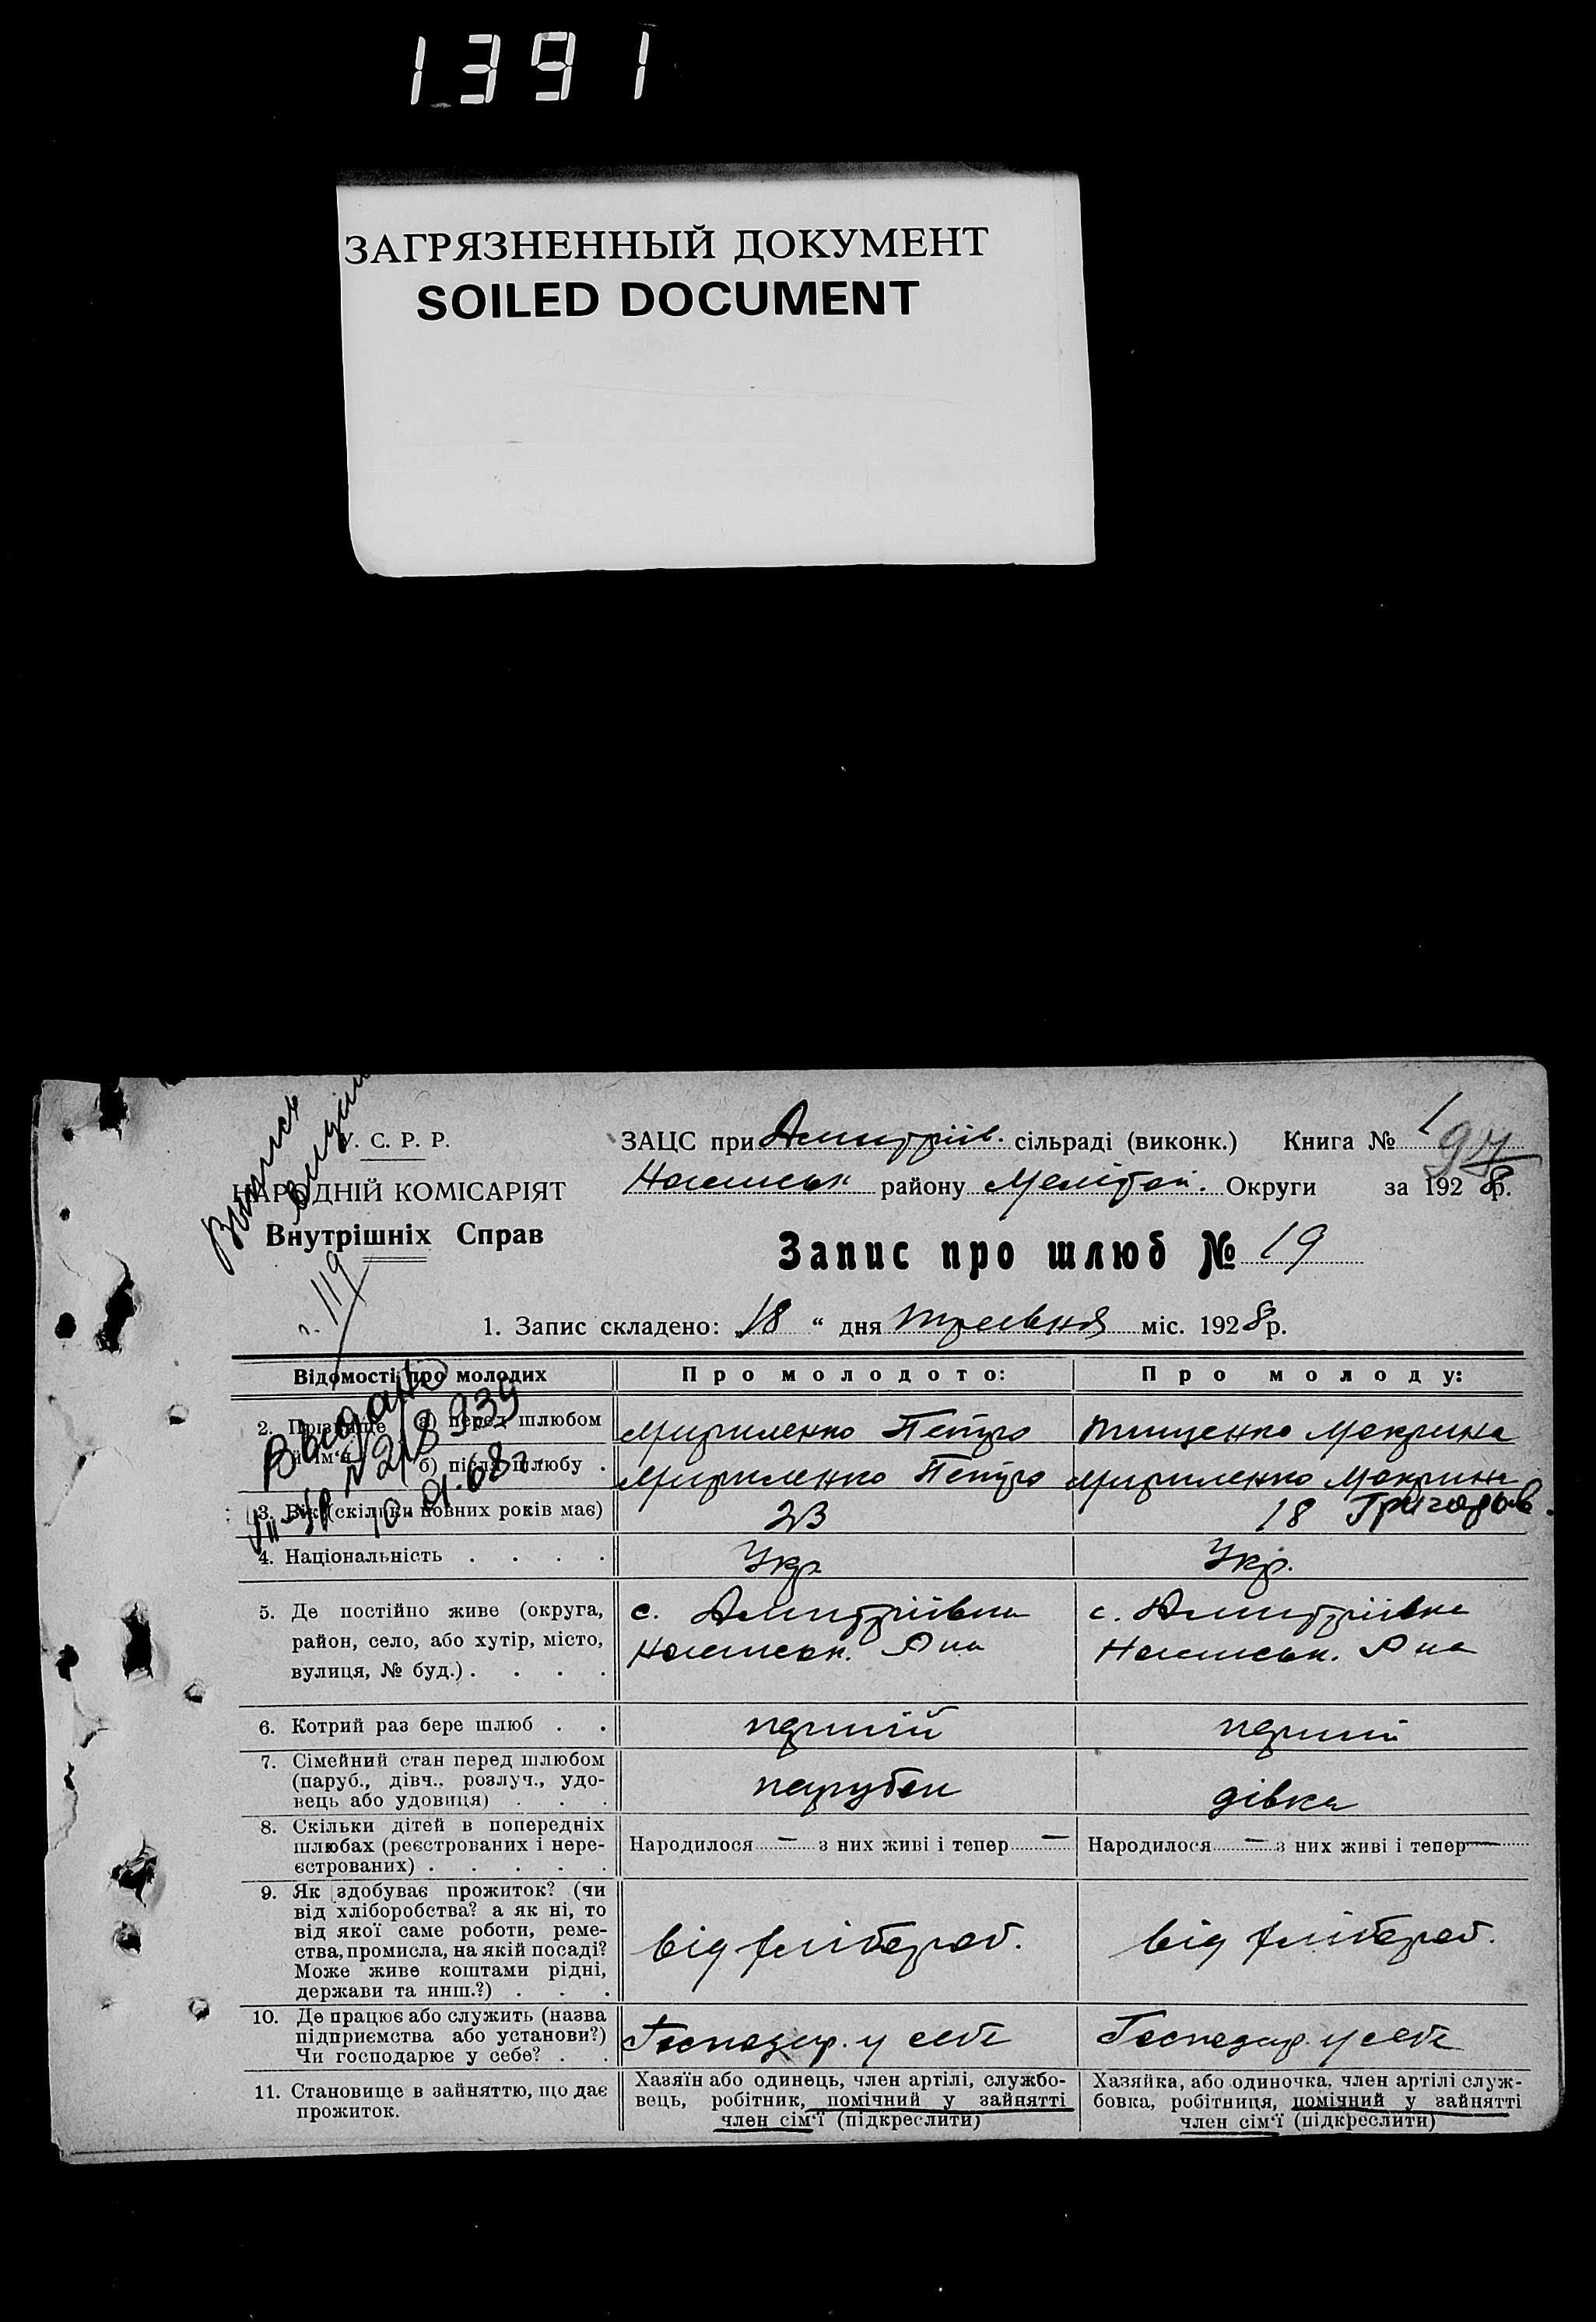 1391
ЗАГРЯЗНЕННЫЙ ДОКУМЕНТ
SOILED DOCUMENT
У. С. Р. Р.
НАРОДНІЙ КОМІСАРІЯТ
Внутрішніх Справ
ЗАЦС при Дмитріїв. сільраді (виконк.) Книга № 1
району Меліт Округи за 1928 р.
Запис про шлюб № 19
1. Запис складено: „18“ дня травня міс. 1928 р.
Відомості про молодих
Про молодого:
Про молоду:
2. Прізвище й ім‘я
а) перед шлюбом
Петро
Тищенко Макрина
б) після шлюбу .
Петро
Макрина
3. Вік (скільки повних років має)
23
18 Григоров.
4. Національність . . . .
Укр
Укр.
5. Де постійно живе (округа,
район, село, або хутір, місто,
вулиця, № буд.) . . . .
с. Дмитріївка
Р на
с. Дмитріївка
Р на
6. Котрий раз бере шлюб . .
перший
перший
7. Сімейний стан перед шлюбом
(паруб., дівч., розлуч., удо-
вець або удовиця) . . .
парубок
дівка
8. Скільки дітей в попередніх
шлюбах (реєстрованих і нере-
єстрованих) . . . . .
Народилося — з них живі і тепер —
Народилося — з них живі і тепер —
9. Як здобуває прожиток? (чи
від хліборобства? а як ні, то
від якої саме роботи, реме-
ства, промисла, на якій посаді?
Може живе коштами рідні,
держави та инш.?) . . .
від хлібороб.
від хлібороб.
10. Де працює або служить (назва
підприємства або установи?)
Чи господарює у себе? . .
Господар. у себе
Господар. у себе
11. Становище в зайняттю, що дає
прожиток.
Хазяїн або одинець, член артілі, службо-
вець, робітник, помічний у зайнятті
член сім‘ї (підкреслити)
Хазяйка, або одиночка, член артілі служ-
бовка, робітниця, помічний у зайнятті
член сім‘ї (підкреслити)